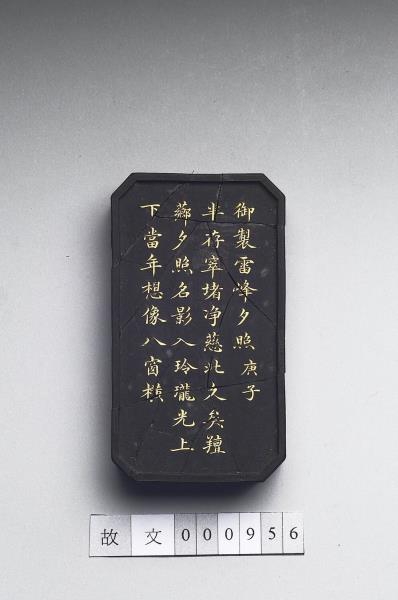 御製雷峰夕照 庚子
半存窣堵净慈北久矣羶
薌夕照名影入玲瓏光上
下當年想像八窗楨
故文000956